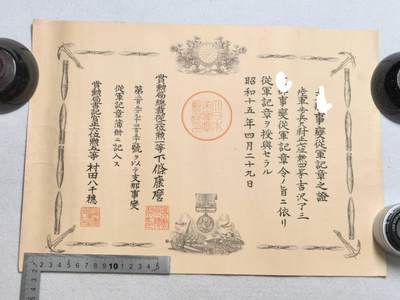 事變從軍記章之證
陸軍歩兵大尉正七位勲等吉沢了三
事變從軍記章令ノ旨ニ依リ
從軍記章ヲ授與セラル
昭和十五年四月二十九日
賞勲局總裁從位勲等下條康麿
第號ヲ以テ支那事變
從軍記章簿册ニ記入ス
賞勲局書記官正六位勲五等村田八千穂
1 2 3 4 5 6 7 8 9 10 11 12 13 14 15